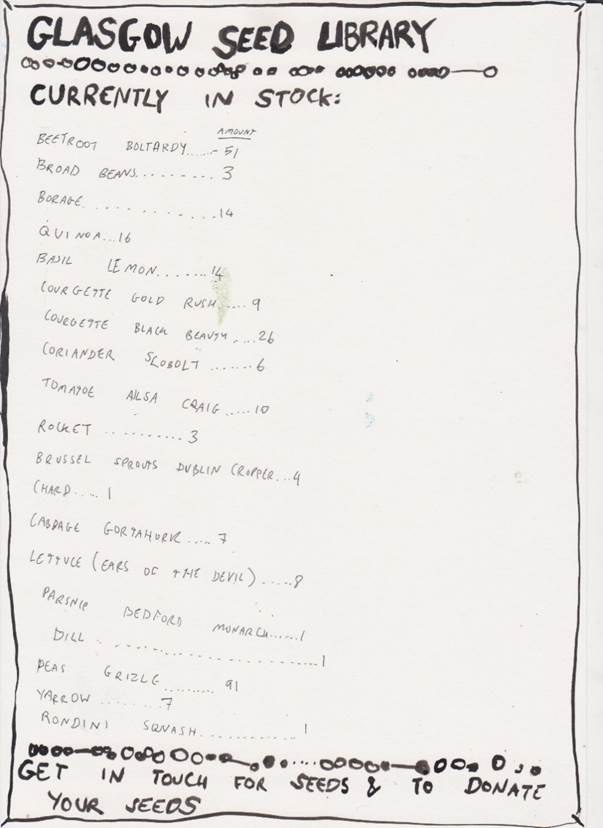 GLASGOW SEED LIBRARY
CURRENTLY IN STOCK:
AMOUNT
BEETROOT BOLTARDY.......51
BROAD BEANS.........3
BORAGE..............14
QUINOA...16
BASIL LEMON.......14
COURGETTE GOLD RUSH.....9
COURGETTE BLACK BEAUTY....26
CORIANDER SLOBOLT.......6
TOMATOE AILSA CRAIG.....10
ROCKET..........3
BRUSSEL SPROUTS DUBLIN CROPPER...4
CHARD....1
CABBAGE GORTAHORK.....7
LETTUCE (EARS OF THE DEVIL).....8
PARSNIP BEDFORD MONARCH......1
DILL....................1
PEAS GRIZLE.........91
YARROW........7
RONDINI SQNASH............1
GET IN TOUCH FOR SEEDS & TO DONATE
YOUR SEEDS